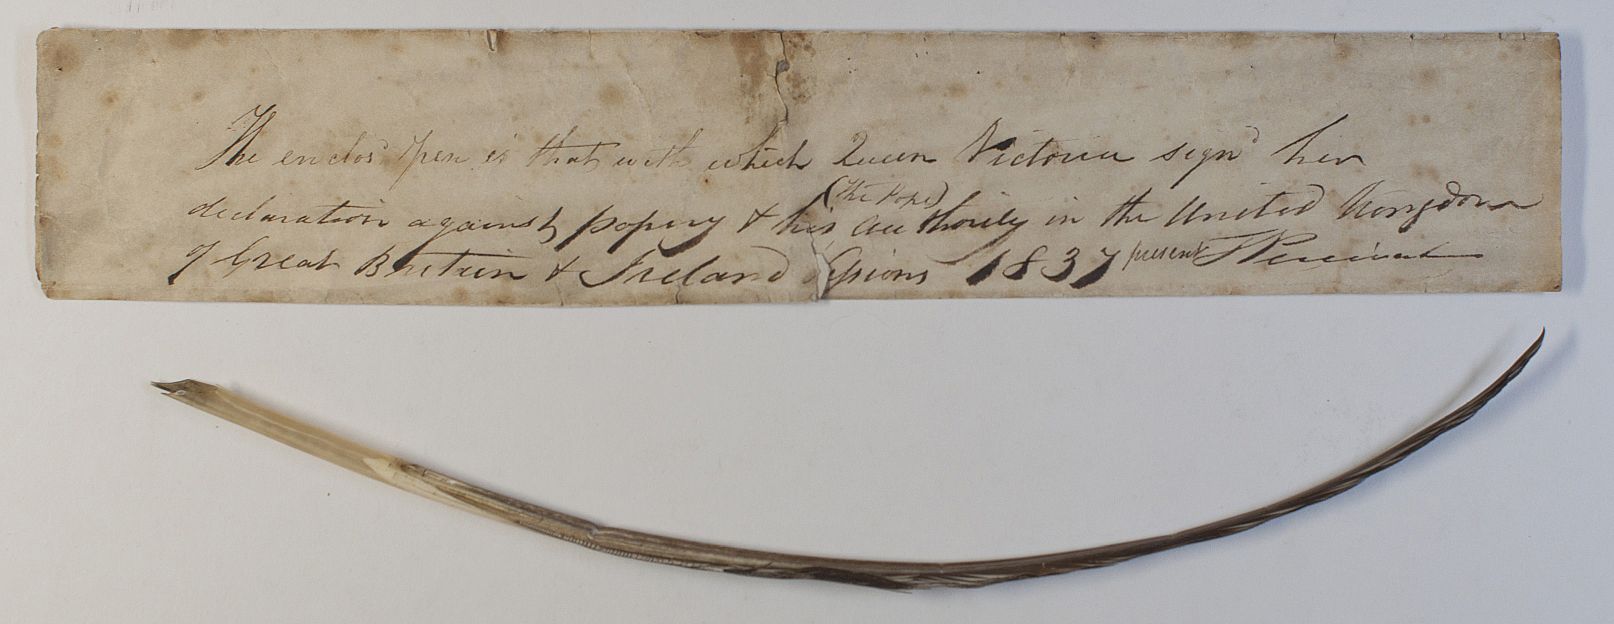 The enclos'd pen is that with which Queen Victoria sign'd her
declaration against popery & his (the Pope) authority in the United Kongdom
of Great Britain & Ireland 1837 present